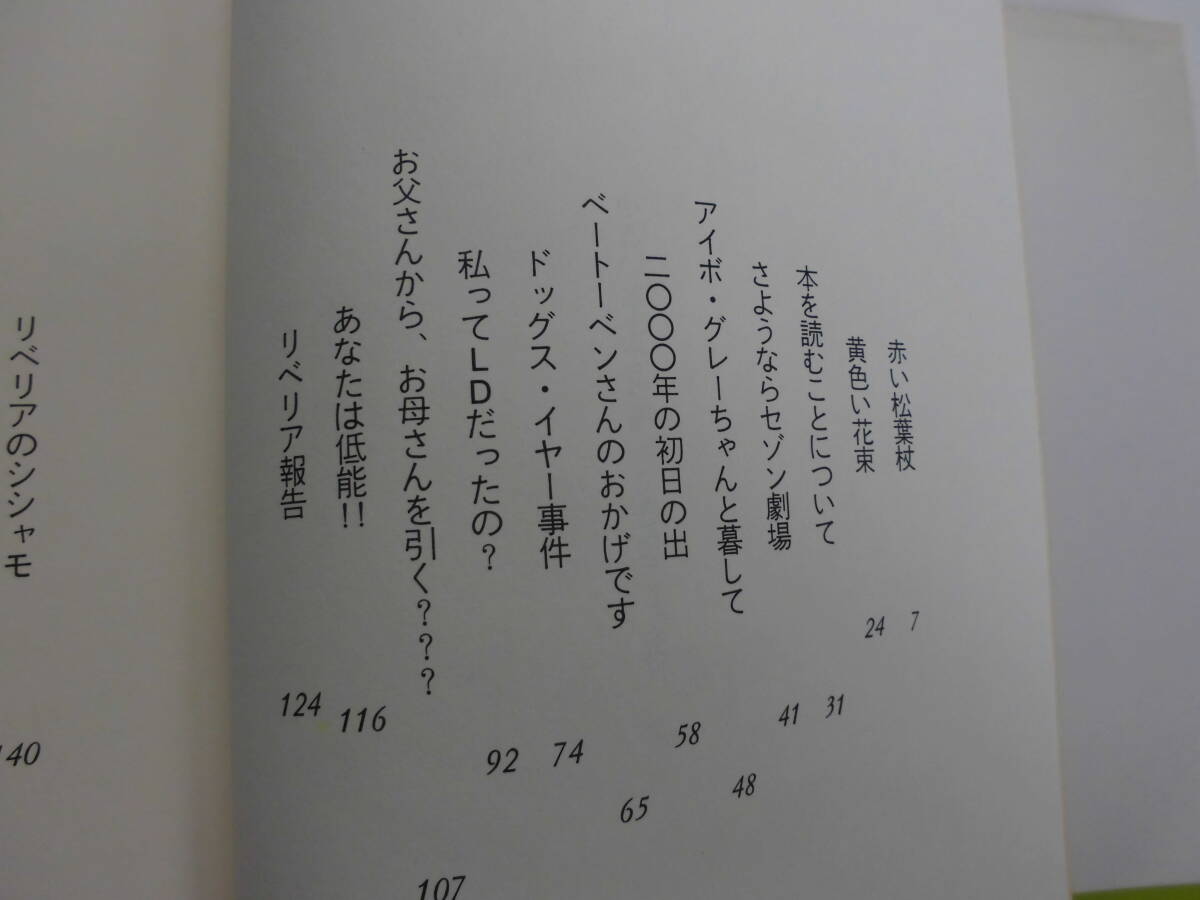 赤い松葉杖 7
黄色い花束 24
本を読むことについて 31
さようならセゾン劇場 41
アイボ・グレーちゃんと暮して 48
二〇〇〇年の初日の出 58
ベートーベンさんのおかげです 65
ドッグス・イヤー事件 74
私ってLDだったの？ 92
お父さんから、お母さんを引く？？？ 107
あなたは低能!! 116
リベリア報告 124
リベリアのシシャモ 140